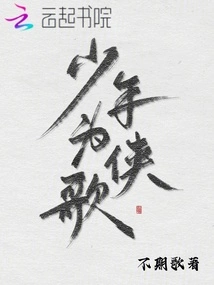 云起书院
少年
为侠
歌
不期歌着